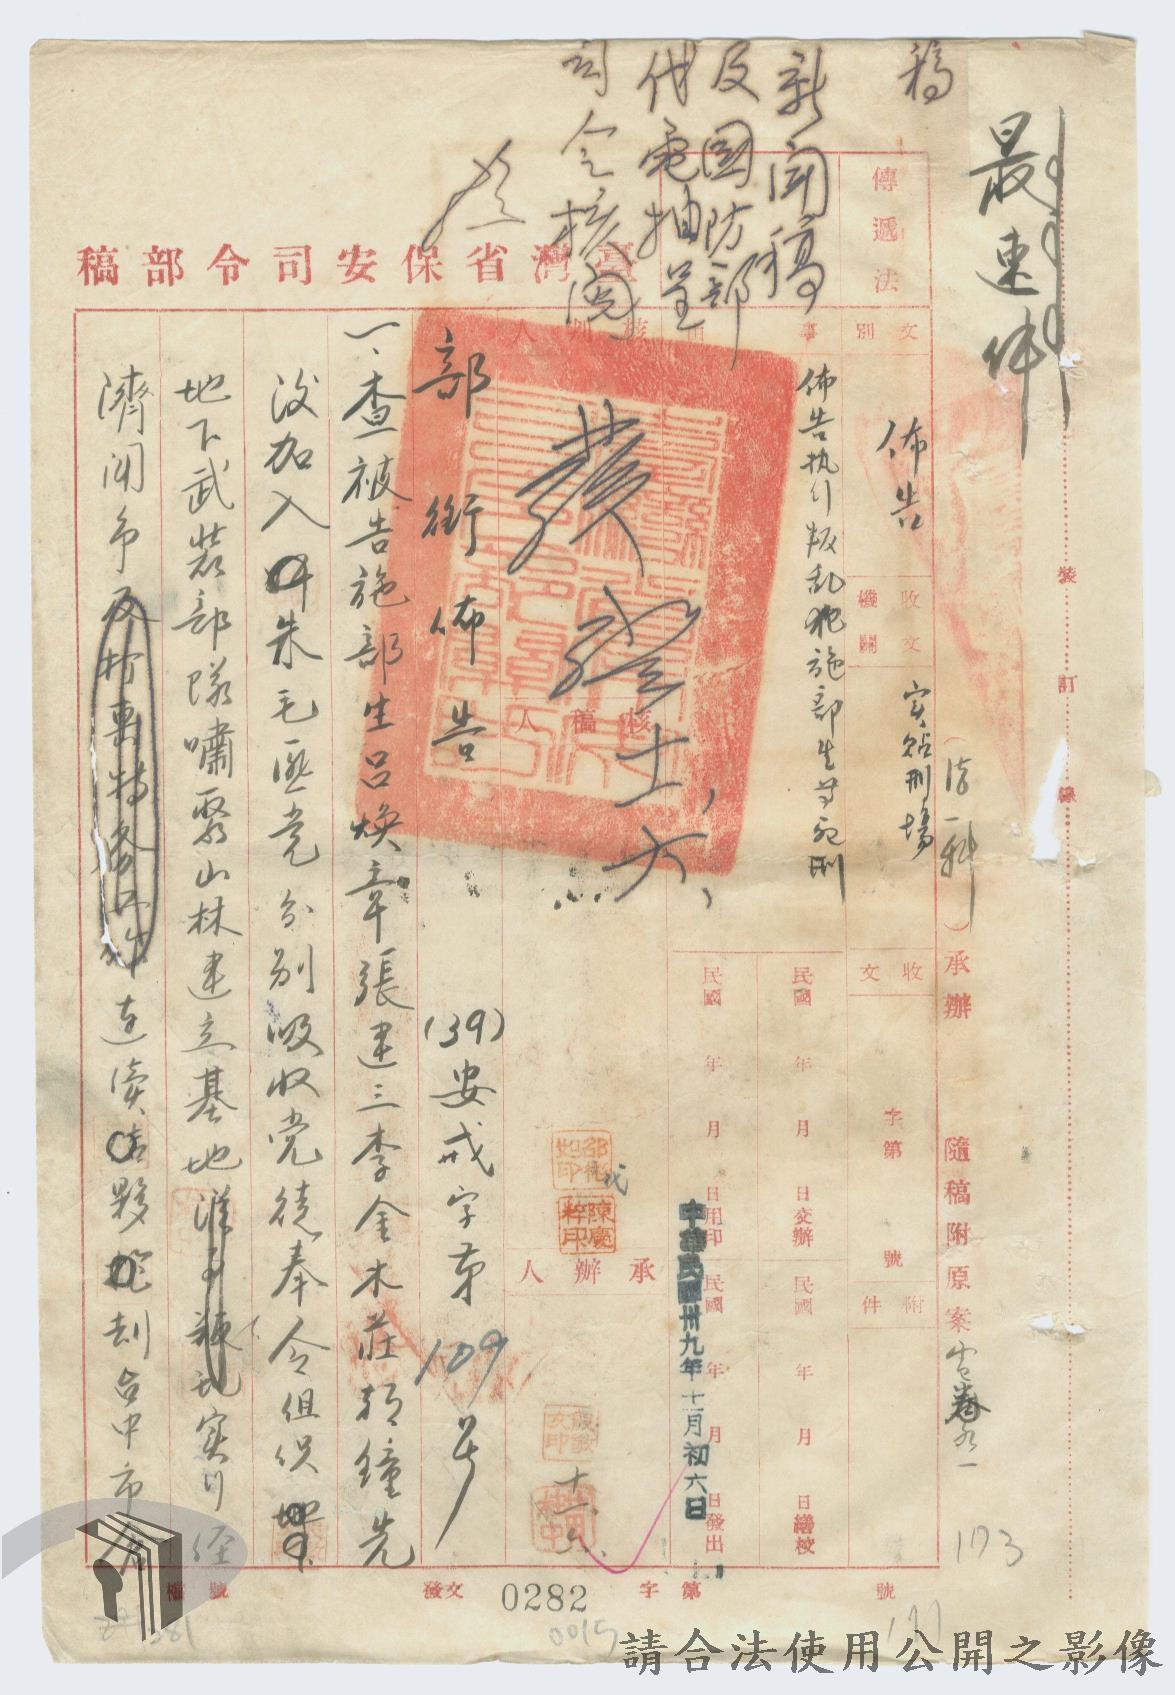 最速件
稿
新聞稿
及國防部
代電抽呈
司令核閱
臺灣省保安司令部稿
傳遞法
(法一科)承辦
隨稿附原案
173
文別
佈告
收文機關
实貼刑場
收文
字第
號
附件
事由
佈告执行叛乱犯施部生等死刑
民國 年 月 日交辦
民國 年 月 日繕校
民國 年 月 日用印
民國 年 月 日發出
中華民國卅九年十一月初六日
核判人
十一,六,
核稿人
代
承辦人
十一.六.
部銜佈告
(39)安戒字第109号
一、查被告施部生吕煥章張建三李金木莊朝鐘先
後加入朱毛匪党分别吸收党徒奉令组织
地下武裝部隊嘯聚山林建立基地實行经
濟鬪爭連續夥刦台中市
檔號
發文
字第
號
0282
0015
請合法使用公開之影像